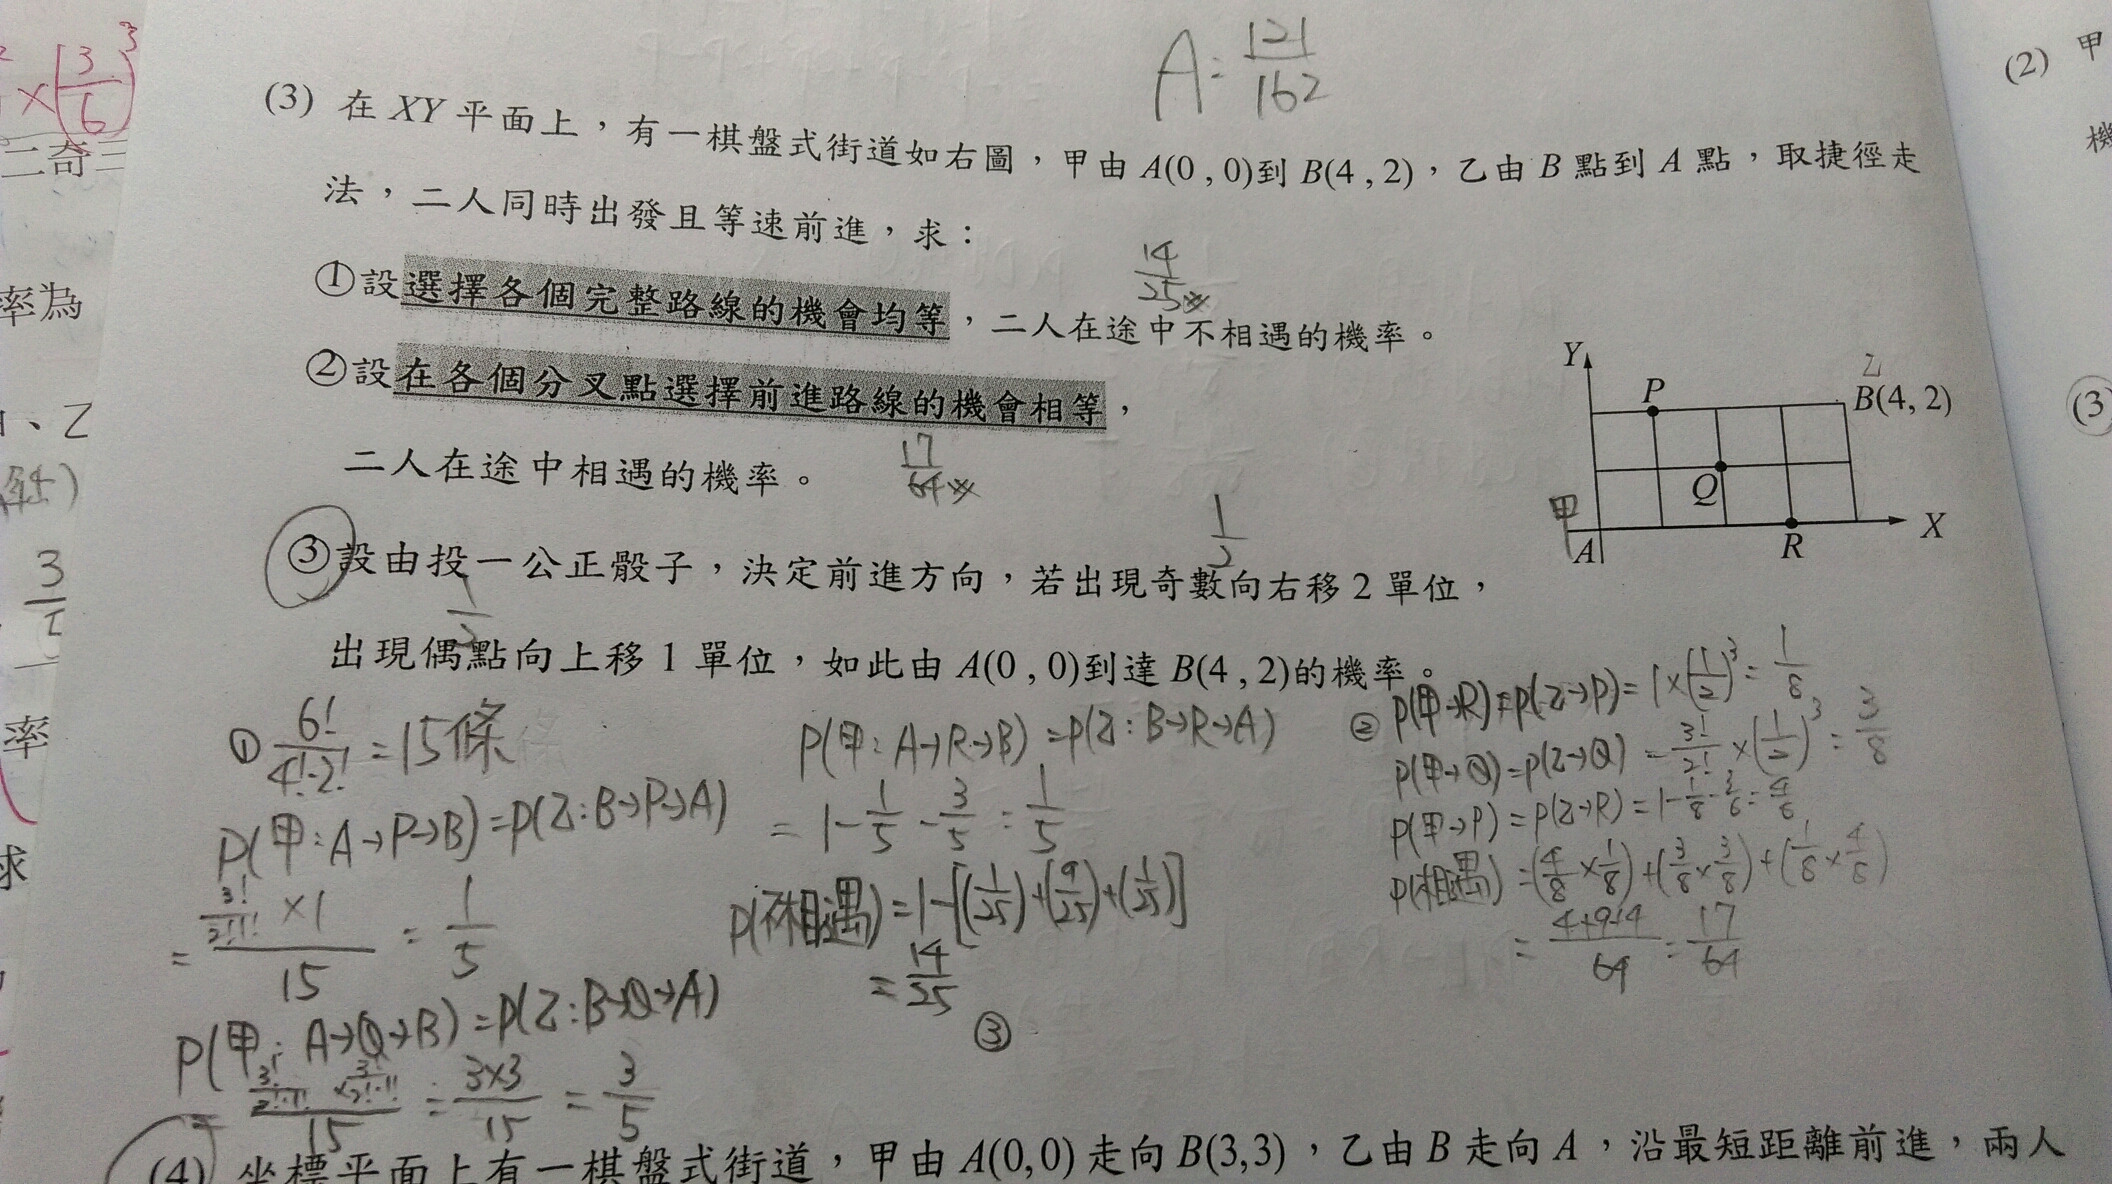 A: 121/162
×(3/6)³
(3) 在 XY 平面上，有一棋盤式街道如右圖，甲由 A(0 , 0)到 B(4 , 2)，乙由 B 點到 A 點，取捷徑走
法，二人同時出發且等速前進，求：
14/25※
①設選擇各個完整路線的機會均等，二人在途中不相遇的機率。
②設在各個分叉點選擇前進路線的機會相等，
二人在途中相遇的機率。 17/64※
Y
P
乙
B(4, 2)
Q
甲
A
R
X
1/2
③設由投一公正骰子，決定前進方向，若出現奇數向右移 2 單位，
1/2
出現偶點向上移 1 單位，如此由 A(0 , 0)到達 B(4 , 2)的機率。
① 6!/4!·2! = 15條
P(甲:A→P→B)=P(乙:B→P→A)
= 3!/2!1! ×1 / 15 = 1/5
P(甲: A→Q→B)=P(乙:B→Q→A)
3!/2!·1! × 3!/2!·1! / 15 = 3×3/15 = 3/5
P(甲: A→R→B)=P(乙:B→R→A)
= 1 - 1/5 - 3/5 = 1/5
P(不相遇)=1-[(1/25)+(9/25)+(1/25)]
= 14/25
③
② P(甲→R)=P(乙→P)=1×(1/2)³=1/8
P(甲→Q)=P(乙→Q) = 3!/2! ×(1/2)³ = 3/8
P(甲→P)=P(乙→R)=1-1/8-3/8=4/8
P(相遇)=(4/8×1/8)+(3/8×3/8)+(1/8×4/8)
= 4+9+4/64 = 17/64
(4) 坐標平面上有一棋盤式街道，甲由 A(0,0) 走向 B(3,3)，乙由 B 走向 A，沿最短距離前進，兩人
二奇三
率為
、乙
率
求
(2) 甲
機
(3)